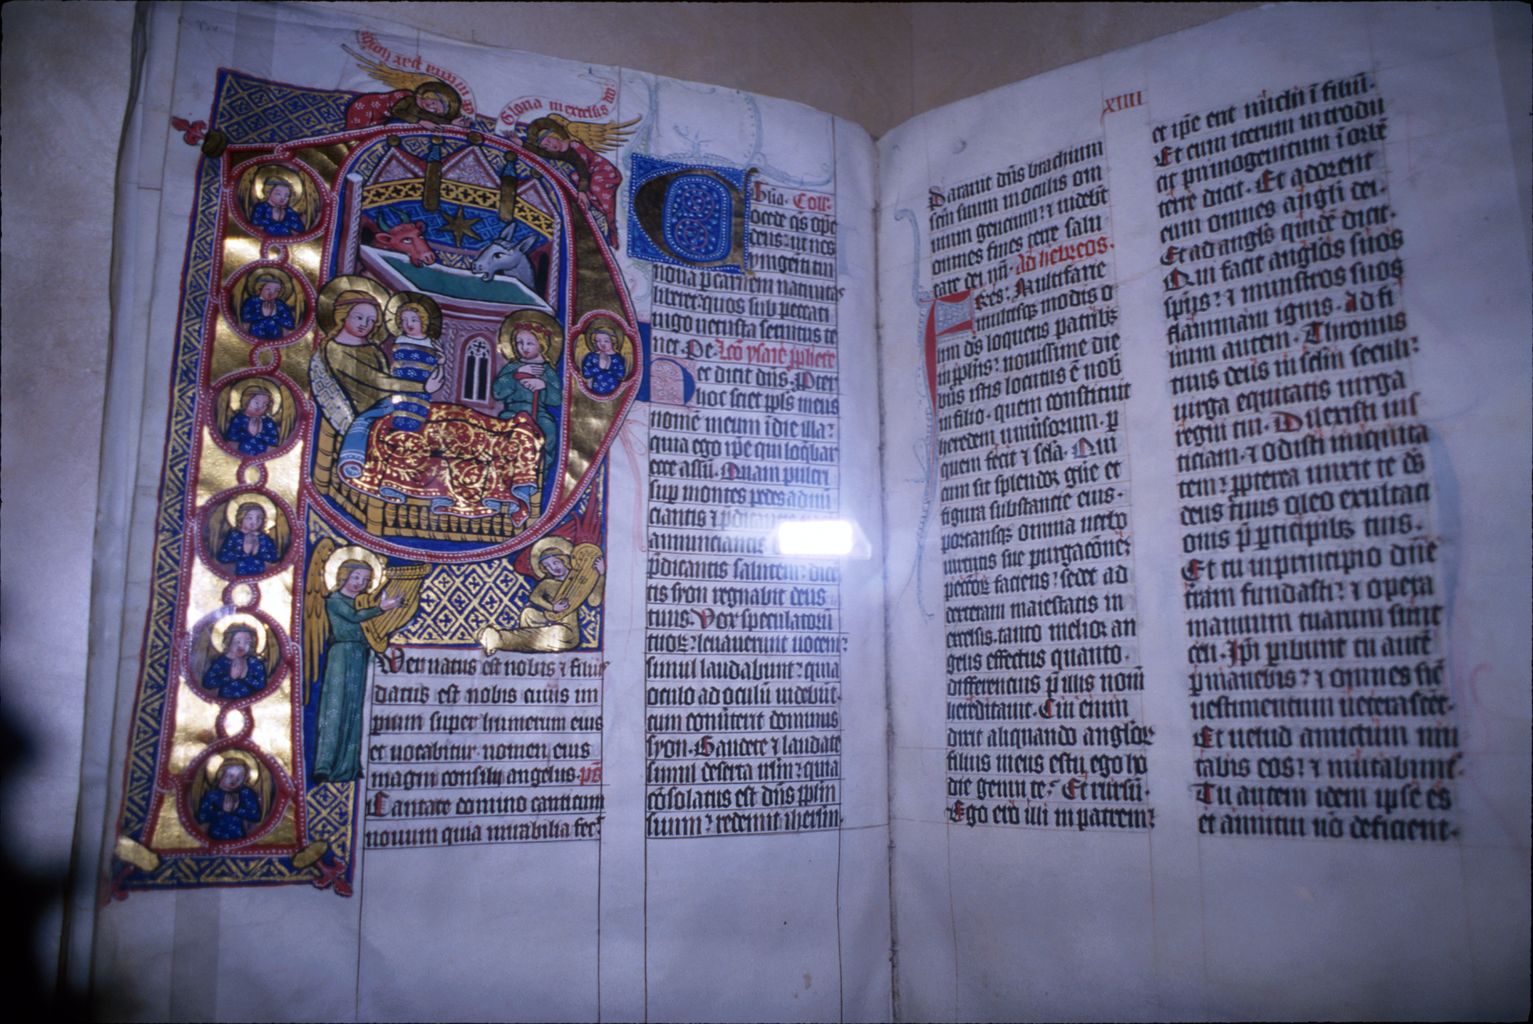 Gloria in excelsis deo
et in terra pax hoĩb
uer natus est nobis ⁊ filiꝰ
datus est nobis cuius im
perium super humerum eius
et uocabitur nomen eius
magni consilii angelus. ps̄
Cantate domino canticum
nouum quia mirabilia fec̃
Coll.
Concede q̄s op̄s
deus: ut nos
unigeniti tui
noua p̱ carnem natiuitas
liberet: quos sub peccati
iugo uetusta seruitus te
net. Per. Lc̃o ysaie ꝓphete
Hec dicit dn̄s. Propter
hoc sciet pp̄ls meus
nomē meum ī die illa:
quia ego ip̄e qui loq̄bar
ecce assū. Quam pulcri
sup montes pedes adnū
ciantis ⁊ p̄dicantis
annunciantis
p̄dicantis salutem: dicē
tis syon regnabit deus
tuus. Vox speculatorū
tuoꝝ: leuauerunt uocem:
simul laudabunt: quia
oculo ad oculū uidebūt:
cum conũterit dominus
syon. Gaudete ⁊ laudate
simul deserta irl̄m: quia
cōsolatus est dn̄s ppl̄m
suum: ⁊ redemit iherl̄m
XIIII
Parauit dn̄s brachium
scm̄ suum in oculis om̄
nium gencium: ⁊ uidebūt
omnes fines terre salu
tare dei nr̄i. Ad hebreos.
Fr̄es. Multifarie
multisqꝫ modis o
lim ds̄ loquens patribꝫ
in ꝓph̄is: nouissime die
bus istis locutus ē nob̄
in filio. quem constituit
heredem uniũsorum. p̱
quem fecit ⁊ sc̄la. Qui
cum sit splendor gl̄e et
figura substantie eius.
portansqꝫ omnia uerbo
uirtutis sue purgac̄onē
pecc̄oꝝ faciens: sedet ad
dexteram maiestatis in
excelsis. tanto melior an
gelis effectus quanto.
differencius p̄ illis nom̄
hereditauit. Cui enim
dixit aliquando angl̄orꝝ
filius meus es tu ego ho
die genui te? Et rursū.
Ego ero illi in patrem:
et ip̄e erit michi ī filiū.
Et cum iterum introdu
cit primogenitum ī orbē
terre dicit. Et adorent
eum omnes angl̄i dei.
Et ad angl̄os quidē dicit.
Qui facit angl̄os suos
sp̄us: ⁊ ministros suos
flammam ignis. ad fi
lium autem. Thronus
tuus deus in sclm̄ seculi:
uirga equitatis uirga
regni tui. Dilexisti ius
ticiam. ⁊ odisti iniquita
tem: ꝓpterea unxit te ds̄
deus tuus oleo exultaci
onis p̄ participibꝫ tuis.
Et tu in principio dn̄e
terram fundasti: ⁊ opera
manuum tuarum sunt
celi. Ip̄i peribunt tu autē
ꝑmanebis: ⁊ omnes sic̄
uestimentum ueterascēt.
Et uelud amictum mu
tabis eos: ⁊ mutabunt̃.
Tu autem idem ipse es
et anni tui nō deficient.